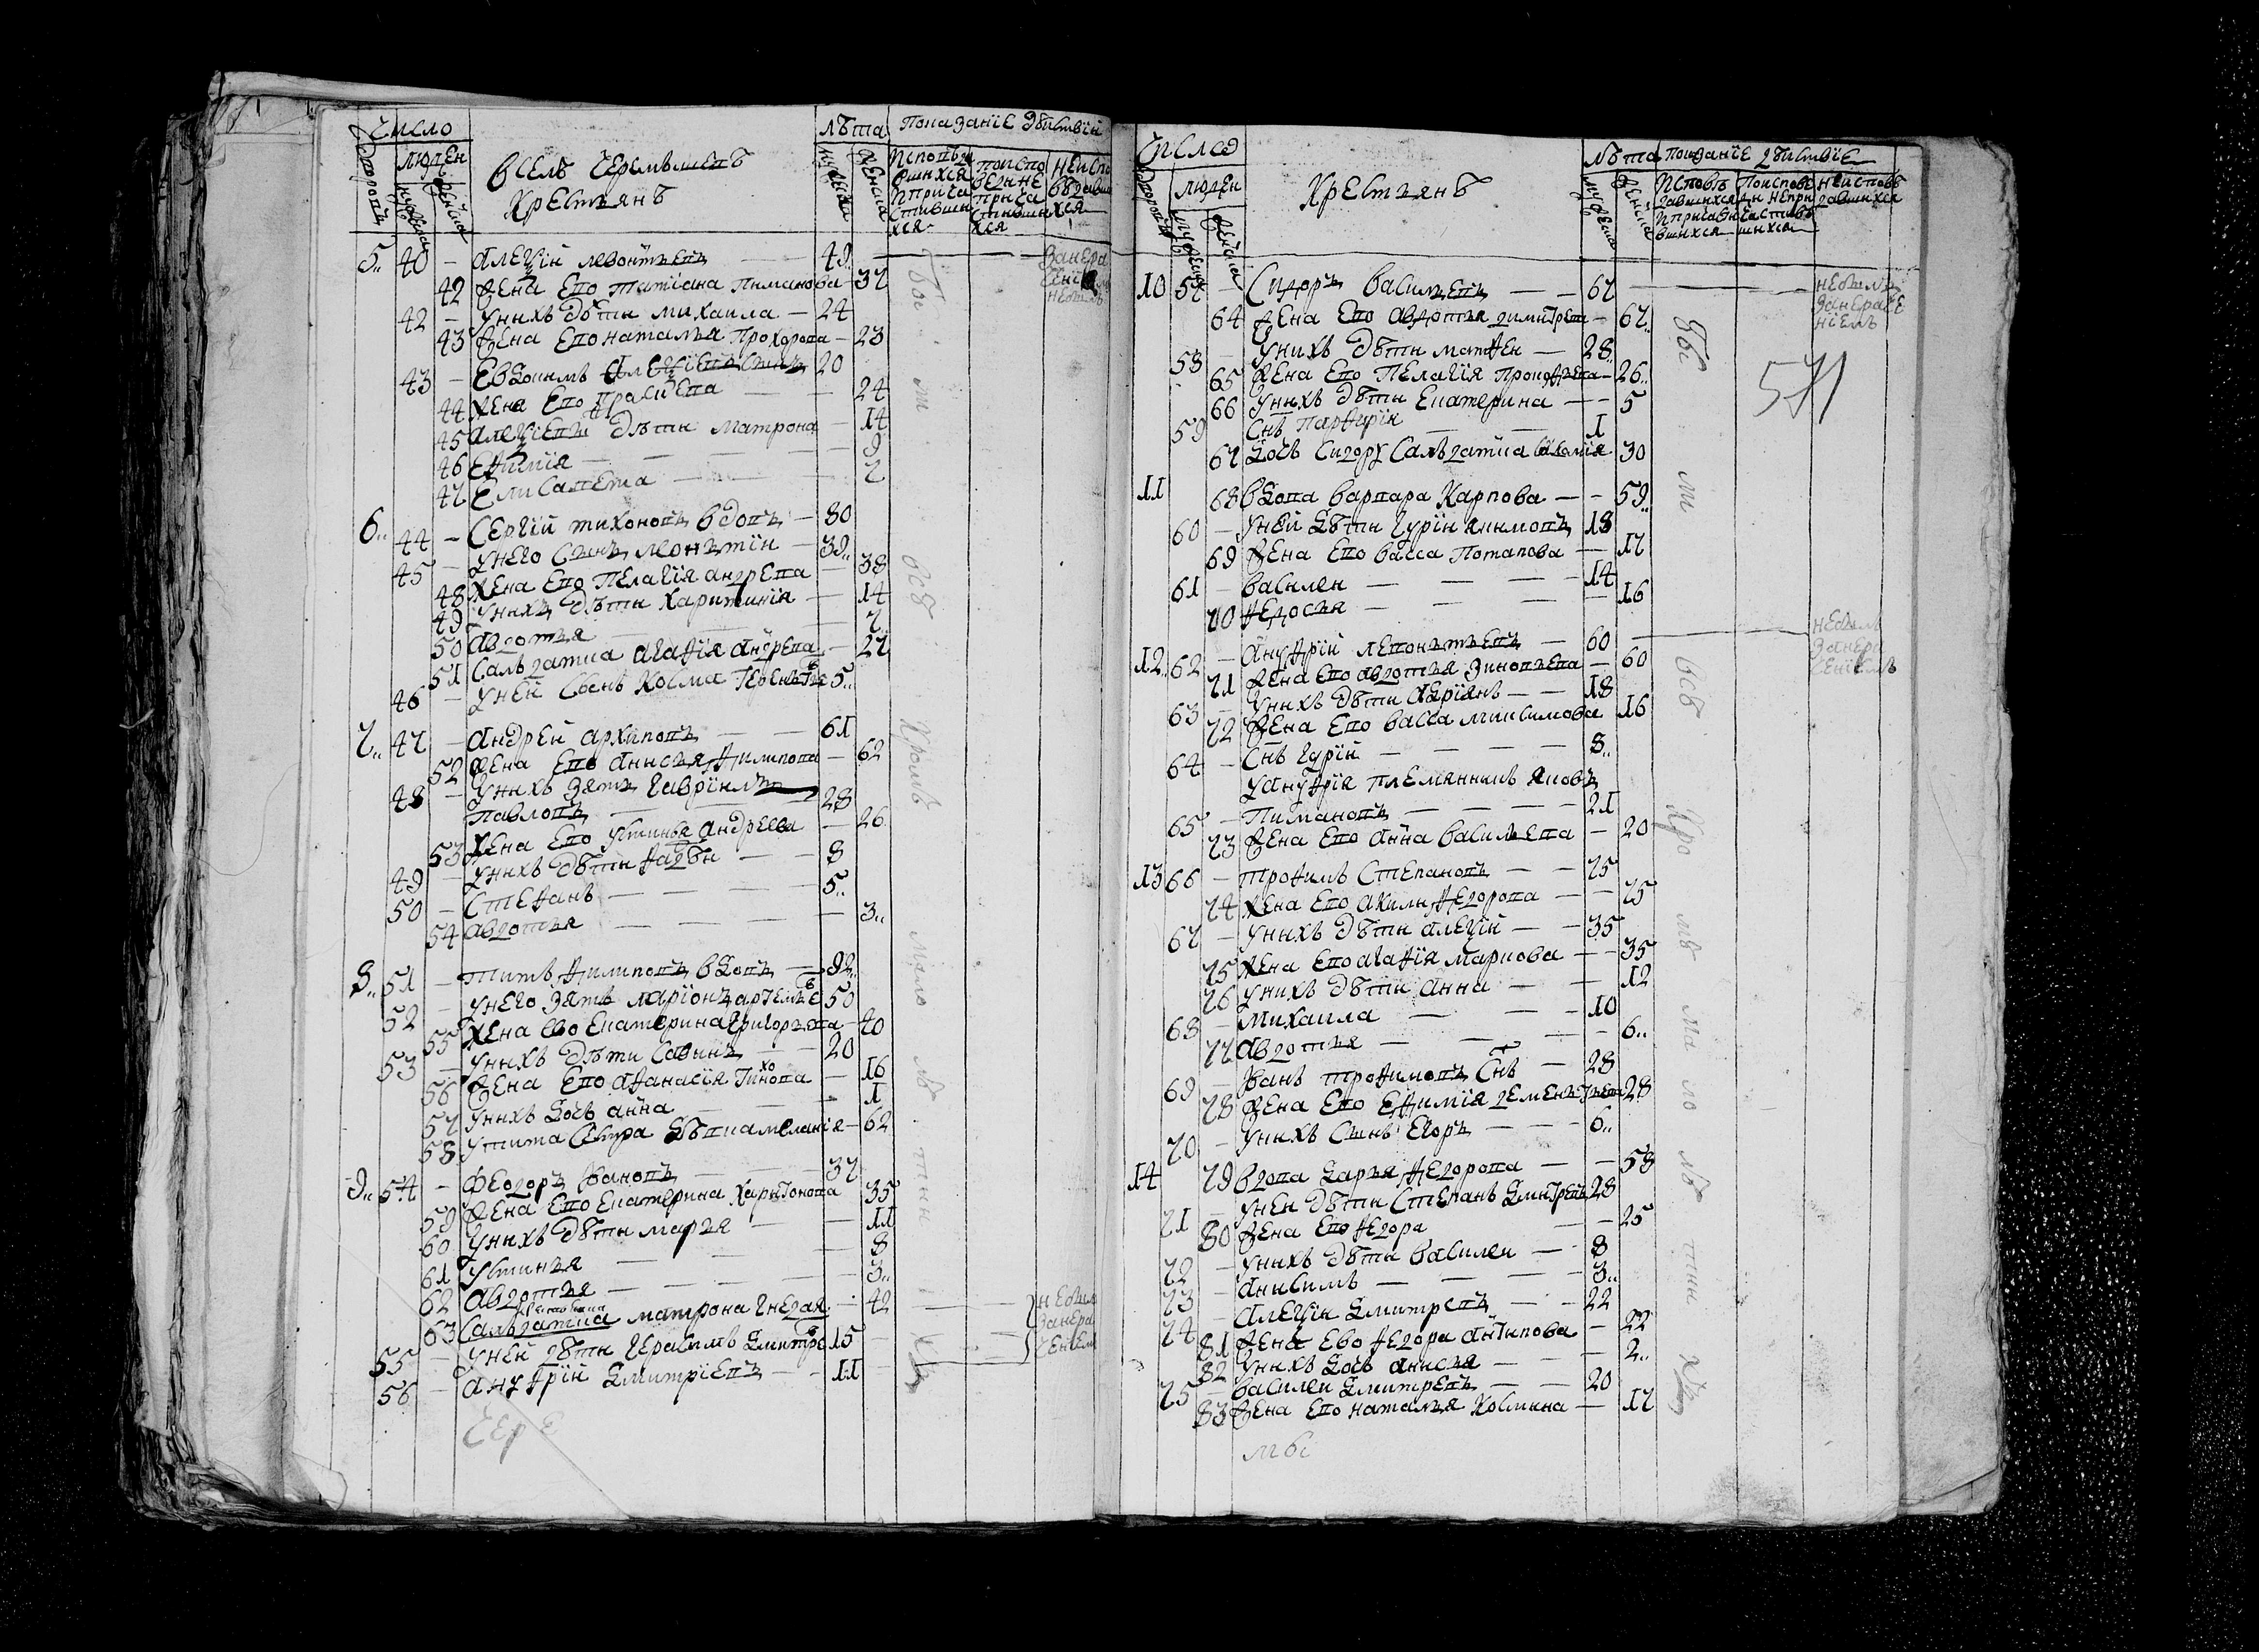 Число
людей
дворовъ
мужеска
женска
Вселъ Черемышевъ
Крестьянъ
лѣта
мужеска
женска
Показанїе дѣиствїи
Исповѣда
вшихся
ипричa
стивши
хся
поиспо
ведине
прича
стивши
хся
неиспо
вѣдавши
хся
5 40 - Алеѯїй левонтьевъ - 49
занера
ченїем
небыл
42 Жена Его татїана пиманова 37
42 - Унихъ дѣти михаила - 24
43 Жена Его наталья Прохорова - 23
43 - Евдоимъ Алеѯїевъ сынъ 20
44 Жена Его праск - 24
45 Алеѯїевы дѣти матрона - 14
46 Еѳимїя - 9
47 Елисавета - 7
6 44 - Сергїй тихоновъ вдовъ - 80
45 - Унего сынъ леонътїи - 39
48 Жена Его Пелагїя андрева - 38
49 Унихъ дѣти харитинїя - 14
50 авдотья - 7
51 Салъдатка агаѳїя андрева - 27
46 - Уней сынъ косма 5
7 47 - Андреи архиповъ - 61
52 Жена Его анисья ѳилипова - 62
48 - Унихъ зять гаврїилъ
павловъ - 28
53 Жена Его устинья андреева - 26
49 - Унихъ дѣти ѳадѣи - 8
50 - Стеѳанъ - 5
54 авдотья - 3
8 51 - титъ ѳилиповъ вдовъ - 92
52 - Унего зять ларїонъ артемье в 50
55 Жена ево Екатерина григорьева 40
53 - Унихъ дѣти савинъ - 20
56 Жена Его аѳанасїя тихонова - 16
57 Унихъ дочь анна - 1
58 Утита сестра дѣвка меланїя - 62
9 54 - Ѳеодоръ Iвановъ - 37
59 Жена Его Екатерина харитонова 35
60 Унихъ дѣти марья - 11
61 Устинья - 8
62 авдотья - 3
63 Салъдатка матрона - 42
небыл
занера
ченїем
55 - Уней дѣти герасимъ дмитре в 15
56 - Ануѳрїй дмитрїевъ - 11
Чере
Число
людей
дворовъ
мужеска
женска
Крестьянъ
лѣта
мужеска
женска
показанїе дѣиствїе
исповѣ
давшихся
ипричасти
вшихся
поиспове
ди непри
частив
шихся
неисповѣ
давшихся
571
10 57 - Сидоръ василъевъ - 67
небылъ
занераче
нїемъ
64 Жена Его авдотья димитрева - 67
58 - Унихъ дѣти матѳеи - 28
65 Жена Его пелагїя прокоѳьева - 26
66 Унихъ дѣти Екатерина - 5
59 Снъ парѳирїи - 1
67 дочь Сидору салъдатка 30
11 68 вдова варвара карпова - 59
60 - Уней дѣти гурїи климовъ 18
69 Жена Его васса потапова - 17
61 - василеи - 14
70 ѳедосья - 16
12 62 - Ануѳрїй левонътьевъ - 60
небыл
занера
ченїемъ
71 Жена Его авдотья зиновьева - 60
63 - Унихъ дѣти адрїянъ - 18
72 Жена Его васса максимова 16
64 - Снъ гурїй - 8
Уануѳрїя племянникъ яковъ
65 - Пимановъ - 21
73 Жена Его анна василъева - 20
13 66 - троѳимъ степановъ - 75
74 Жена Его акили ѳедорова - 75
67 - Унихъ дѣти алеѯїй - 35
75 Жена Его агаѳїя маркова - 35
76 Унихъ дѣти анна - 12
68 - Михаила - 10
77 авдотья - 6
69 - Iванъ троѳимовъ Снъ - 28
78 Жена Его Еѳимїя дементьева 28
70 - Унихъ сынъ Егоръ - 6
14 79 вдова дарья ѳедорова - 58
71 - Унеи дѣти степанъ дмитревъ 28
80 Жена Его ѳедора - 25
72 - Унихъ дѣти василеи - 8
73 - анисимъ - 3
74 - алеѯїи дмитревъ - 22
81 Жена Ево ѳедора антипова - 22
82 Унихъ дочь анисья - 2
75 - василеи дмитревъ - 20
83 Жена Его наталья космина - 17